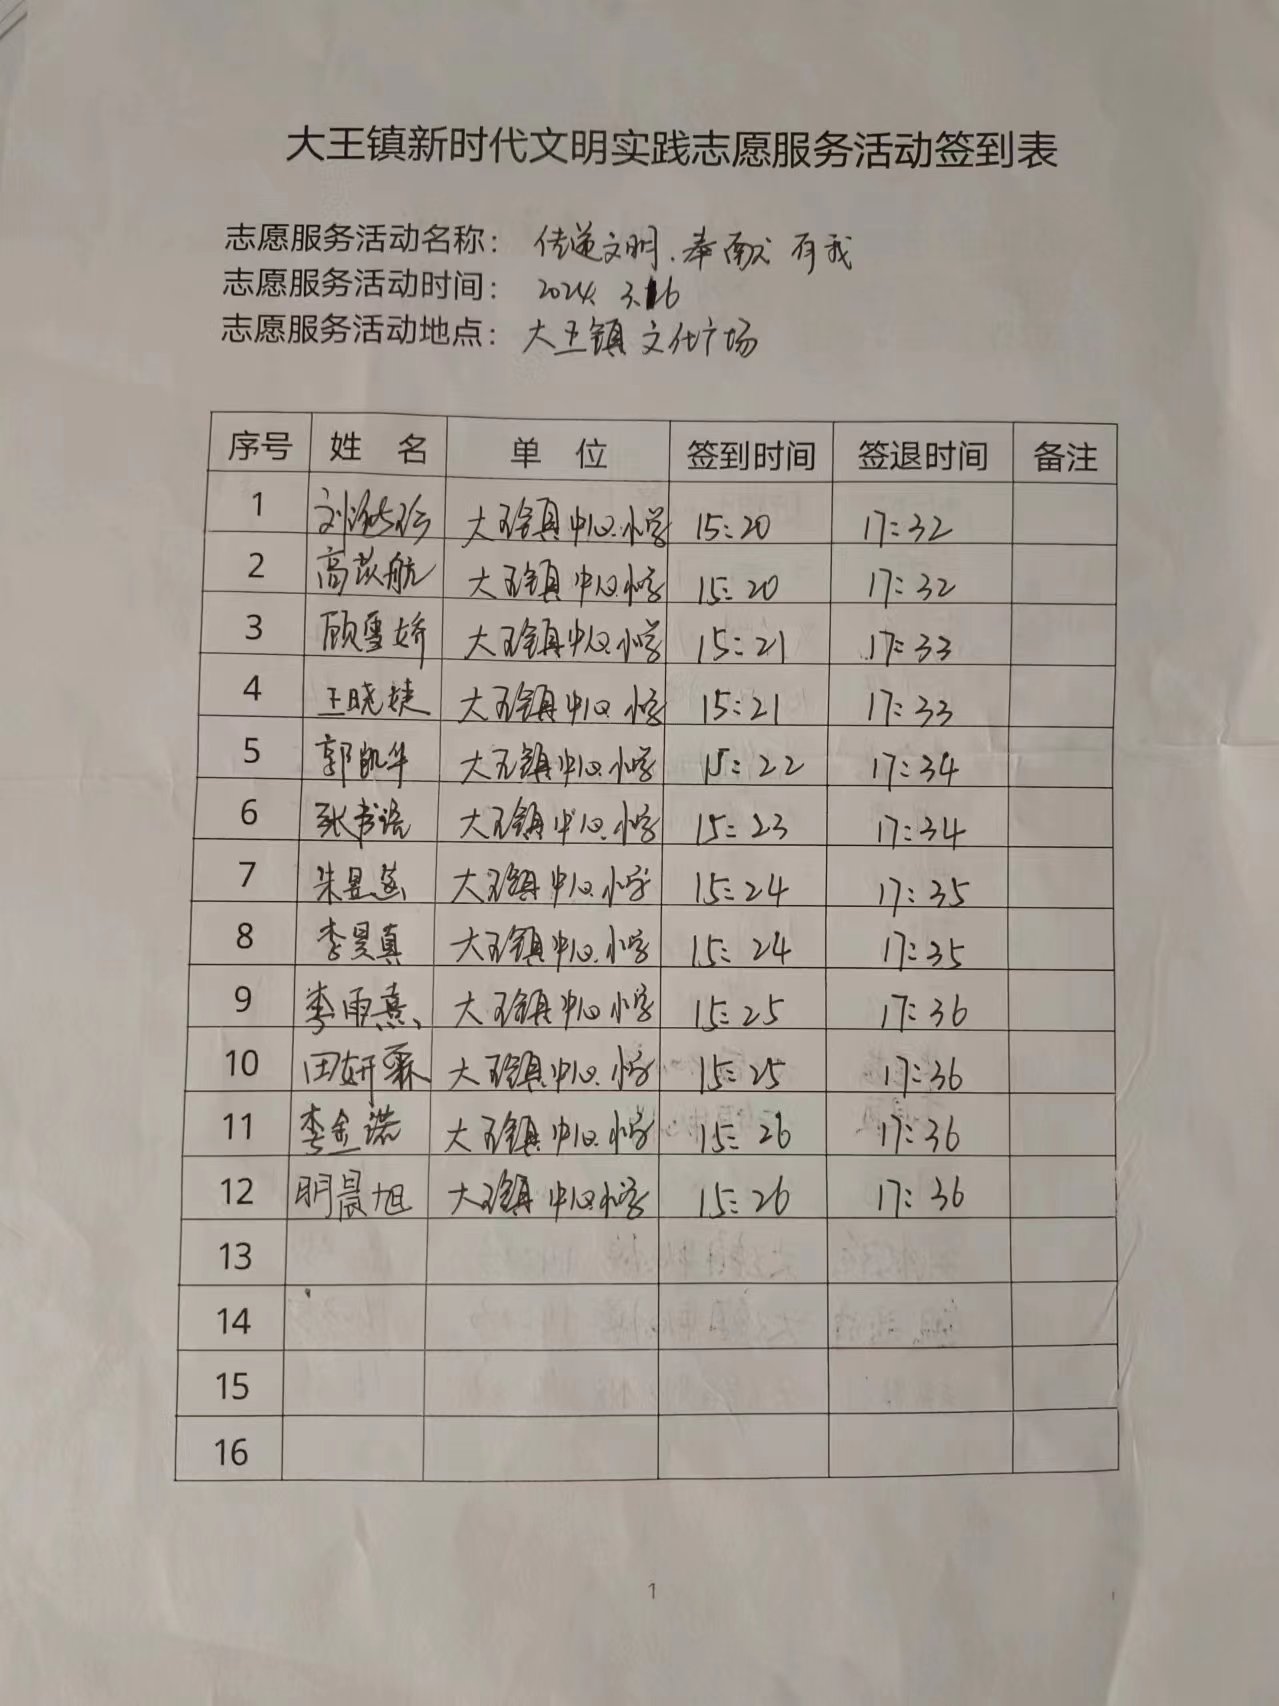 大王镇新时代文明实践志愿服务活动签到表
志愿服务活动名称： 传递文明.奉献有我
志愿服务活动时间： 2024. 3.16
志愿服务活动地点： 大王镇文化广场
序号 姓 名 单 位 签到时间 签退时间 备注
1 大王镇中心小学 15:20 17:32
2 高苡航 大王镇中心小学 15:20 17:32
3 顾雪娇 大王镇中心小学 15:21 17:33
4 王晓婕 大王镇中心小学 15:21 17:33
5 郭凯华 大王镇中心小学 15:22 17:34
6 张书语 大王镇中心小学 15:23 17:34
7 大王镇中心小学 15:24 17:35
8 李昊真 大王镇中心小学 15:24 17:35
9 李雨熹 大王镇中心小学 15:25 17:36
10 田妍霖 大王镇中心小学 15:25 17:36
11 李金诺 大王镇中心小学 15:26 17:36
12 明晨旭 大王镇中心小学 15:26 17:36
13
14
15
16
1